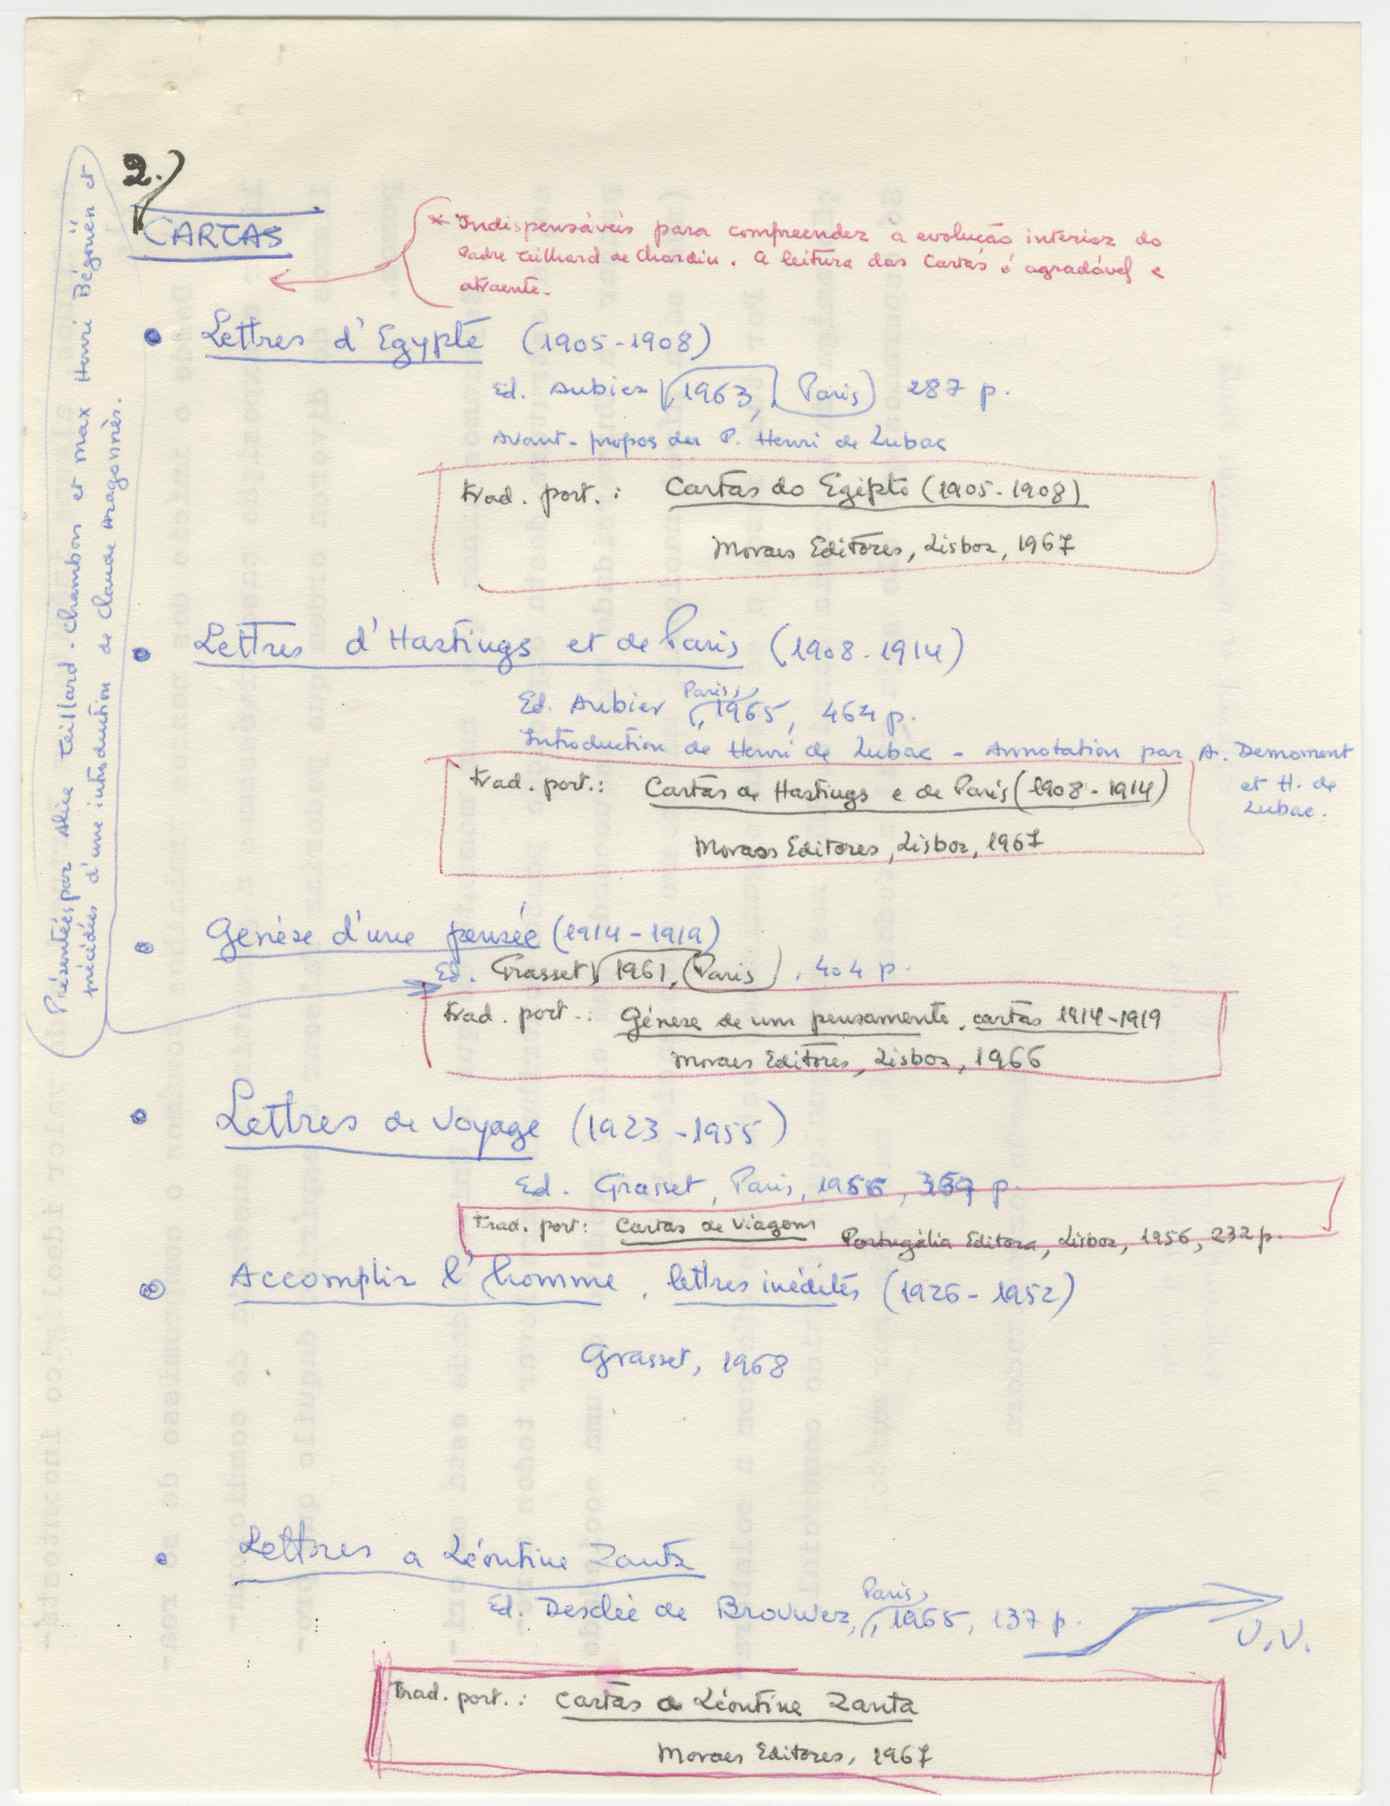 2.)
CARTAS
* Indispensáveis para compreender a evolução interior do
Padre Teilhard de Chardin. A leitura das Cartas é agradável e
atraente.
• Lettres d'Egypte (1905-1908)
Ed. Aubier, 1963, (Paris) 287 p.
Avant-propos du P. Henri de Lubac
Trad. port.: Cartas do Egipto (1905-1908)
Moraes Editores, Lisboa, 1967
• Lettres d'Hastings et de Paris (1908-1914)
Ed. Aubier, Paris, 1965, 464 p.
Introduction de Henri de Lubac - Annotation par A. Demoment
et H. de
Lubac.
Trad. port.: Cartas de Hastings e de Paris (1908-1914)
Moraes Editores, Lisboa, 1967
• Genèse d'une pensée (1914-1919)
Ed. Grasset, 1961, (Paris), 404 p.
Présentées par Alice Teillard-Chambon et Max Henri Bégoüën et
précédées d'une introduction de Claude Aragonnès.
Trad. port.: Génese de um pensamento, cartas 1914-1919
Moraes Editores, Lisboa, 1966
• Lettres de voyage (1923-1955)
Ed. Grasset, Paris, 1956, p.
Trad. port: Cartas de Viagem Portugália Editora, Lisboa, 1956, 232 p.
• Accomplir l'homme, lettres inédites (1926-1952)
Grasset, 1968
• Lettres a Léontine Zanta
Ed. Desclée de Brouwer, Paris, 1965, 137 p.
V.V.
Trad. port.: Cartas a Léontine Zanta
Moraes Editores, 1967